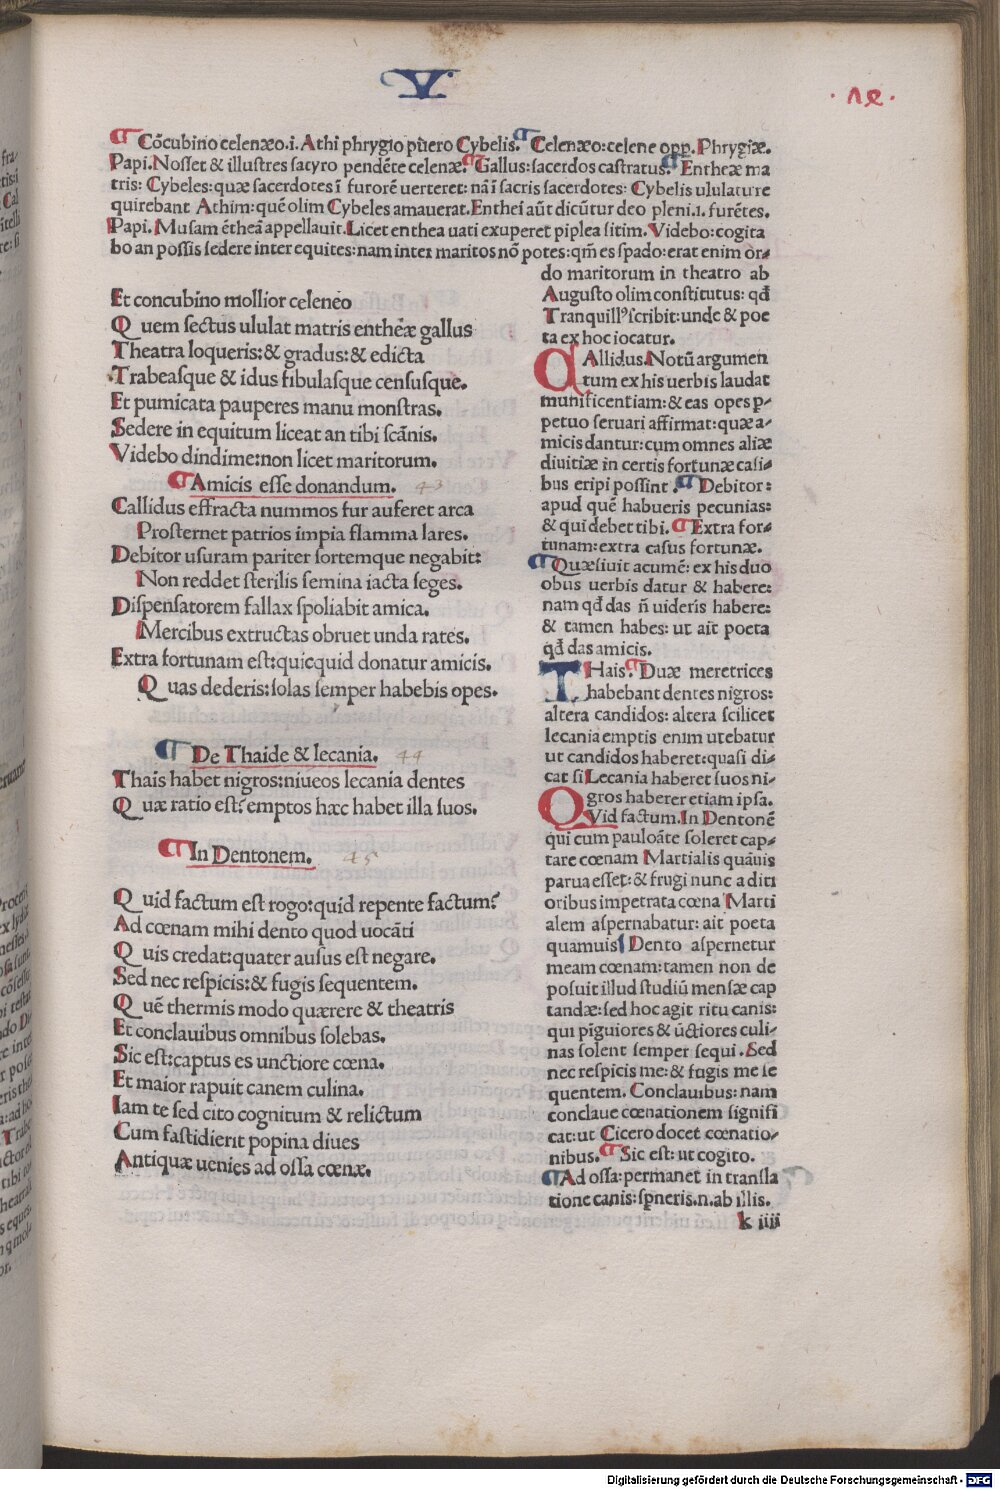 V
Cōcubino celenæo.i. Athi phrygio pūero Cybelis. Celenæo:celene opp. Phrygiæ.
Papi. Nosset & illustres satyro pendēte celenæ. Gallus:sacerdos castratus. Entheæ ma
tris: Cybeles:quæ sacerdotes ī furorē uerteret: nā ī sacris sacerdotes: Cybelis ululature
quirebant Athim:quē olim Cybeles amauerat. Enthei aūt dicūtur deo pleni.i. furētes.
Papi. Musam ētheā appellauit. Licet enthea uati exuperet piplea sitim. Videbo:cogita
bo an possis sedere inter equites:nam inter maritos nō potes:qm̄ es spado:erat enim or-
Et concubino mollior celeneo
Quem sectus ululat matris entheæ gallus
Theatra loqueris:& gradus:& edicta
Trabeasque & idus fibulasque censusque.
Et pumicata pauperes manu monstras.
Sedere in equitum liceat an tibi scānis.
Videbo dindime:non licet maritorum.
Amicis esse donandum. 43
Callidus effracta nummos fur auferet arca
Prosternet patrios impia flamma lares.
Debitor usuram pariter sortemque negabit:
Non reddet sterilis semina iacta seges.
Dispensatorem fallax spoliabit amica.
Mercibus extructas obruet unda rates.
Extra fortunam est:quicquid donatur amicis.
Quas dederis:solas semper habebis opes.
De Thaide & lecania. 44
Thais habet nigros:niueos lecania dentes
Quæ ratio est? emptos hæc habet illa suos.
In Dentonem. 45
Quid factum est rogo:quid repente factum?
Ad cœnam mihi dento quod uocāti
Quis credat:quater ausus est negare.
Sed nec respicis:& fugis sequentem.
Quē thermis modo quærere & theatris
Et conclauibus omnibus solebas.
Sic est:captus es unctiore cœna.
Et maior rapuit canem culina.
Iam te sed cito cognitum & relictum
Cum fastidierit popina diues
Antiquæ uenies ad ossa cœnæ.
do maritorum in theatro ab
Augusto olim constitutus: qđ
Tranquill⁹ scribit:unde & poe
ta ex hoc iocatur.
CAllidus. Notū argumen
tum ex his uerbis laudat
munificentiam:& eas opes p-
petuo seruari affirmat:quæ a-
micis dantur:cum omnes aliæ
diuitiæ in certis fortunæ casi-
bus eripi possint. Debitor:
apud quē habueris pecunias:
& qui debet tibi. Extra for-
tunam:extra casus fortunæ.
Quæsiuit acumē: ex his duo
obus uerbis datur & habere:
nam qđ das n̄ uideris habere:
& tamen habes: ut ait poeta
qđ das amicis.
THais. Duæ meretrices
habebant dentes nigros:
altera candidos: altera scilicet
lecania emptis enim utebatur
ut candidos haberet:quasi di-
cat si Lecania haberet suos ni-
gros haberer etiam ipsa.
QVid factum. In Dentonē
qui cum pauloāte soleret cap-
tare cœnam Martialis quāuis
parua esset:& frugi nunc a diti
oribus impetrata cœna Marti
alem aspernabatur: ait poeta
quamuis Dento aspernetur
meam cœnam:tamen non de
posuit illud studiū mensæ cap
tandæ:sed hoc agit ritu canis:
qui pīguiores & ūctiores culi-
nas solent semper sequi. Sed
nec respicis me:& fugis me se
quentem. Conclauibus: nam
conclaue cœnationem signifi
cat:ut Cicero docet cœnatio-
nibus. Sic est: ut cogito.
Ad ossa:permanet in transla
tione canis:sp̄neris.n.ab illis.
k iiii
Digitalisierung gefördert durch die Deutsche Forschungsgemeinschaft - DFG